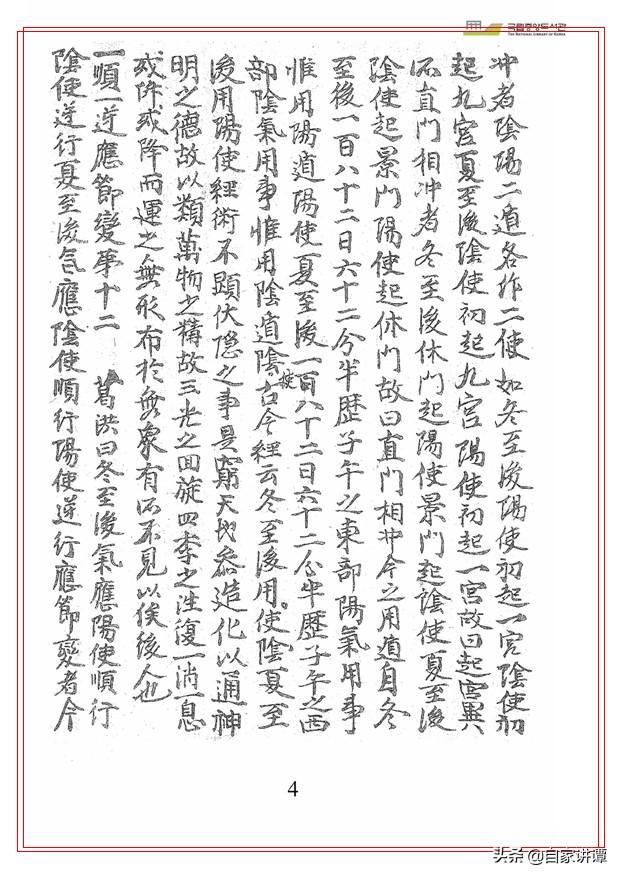 국립중앙도서관
THE NATIONAL LIBRARY OF KOREA
冲者陰陽二道各作二使如冬至後陽使初起一宮陰使初
起九宮夏至後陰使初起九宮陽使初起一宮故曰起宮異
不直門相冲者冬至後休門起陽使景門起陰使夏至後
陰使起景門陽使起休門故曰直門相冲今之用道自冬
至後一百八十二日六十二分半歷子午之東部陽氣用事
惟用陽道陽使夏至後一百八十二日六十二分半歷子午之西
部陰氣用事惟用陰道陰按古今經云冬至後用使陰夏至
後用陽使經術不顯伏隐之事是窮天地叅造化以通神
明之德故以類萬物之精故三光之回旋四季之泩復一消一息
或阩或降而運之無形布於無象有不見以俟後人也
一順一逆應節變事十二 葛洪曰冬至後氣應陽使順行
陰使逆行夏至後氣應陰使順行陽使逆行應節變者今
4
头条 @自家讲谭